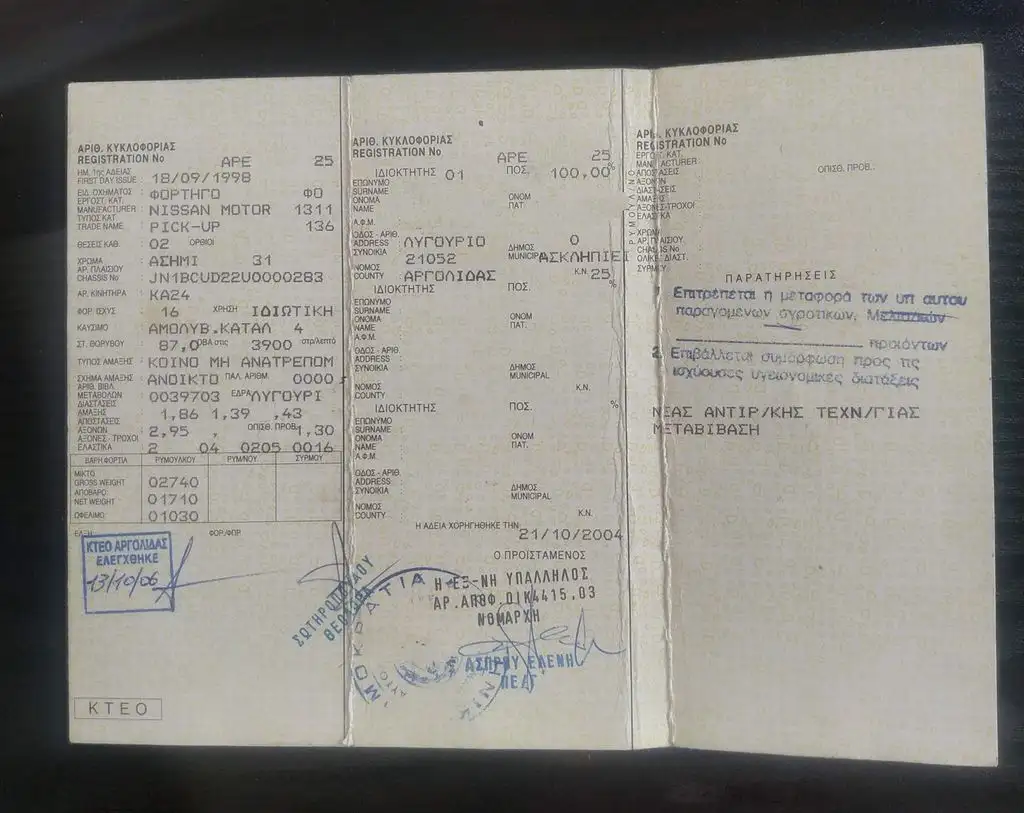 ΑΡΙΘ. ΚΥΚΛΟΦΟΡΙΑΣ
REGISTRATION No ΑΡΕ 25
ΗΜ. 1ης ΑΔΕΙΑΣ
FIRST DAY ISSUE : 18/09/1998
ΕΙΔ. ΟΧΗΜΑΤΟΣ : ΦΟΡΤΗΓΟ ΦΟ
ΕΡΓΟΣΤ. ΚΑΤ.
MANUFACTURER : NISSAN MOTOR 1311
ΤΥΠΟΣ ΚΑΤ.
TRADE NAME : PICK-UP 136
ΘΕΣΕΙΣ ΚΑΘ. : 02 ΟΡΘΙΟΙ
ΧΡΩΜΑ : ΑΣΗΜΙ 31
ΑΡ. ΠΛΑΙΣΙΟΥ
CHASSIS No : JN1BCUD22U0000283
ΑΡ. ΚΙΝΗΤΗΡΑ : KA24
ΦΟΡ. ΙΣΧΥΣ : 16 ΧΡΗΣΗ ΙΔΙΩΤΙΚΗ
ΚΑΥΣΙΜΟ : ΑΜΟΛΥΒ.ΚΑΤΑΛ 4
ΣΤ. ΘΟΡΥΒΟΥ : 87,0 DBA στις 3900 στρ/λεπτό
ΤΥΠΟΣ ΑΜΑΞΗΣ : ΚΟΙΝΟ ΜΗ ΑΝΑΤΡΕΠΟΜ
ΣΧΗΜΑ ΑΜΑΞΗΣ : ΑΝΟΙΚΤΟ ΠΑΛ. ΑΡΙΘΜ. 0000
ΑΡΙΘ. ΒΙΒΛ.
ΜΕΤΑΒΟΛΩΝ : 0039703 ΕΔΡΑ ΛΥΓΟΥΡΙ
ΔΙΑΣΤΑΣΕΙΣ
ΑΜΑΞΗΣ : 1,86 1,39 ,43
ΑΠΟΣΤΑΣΕΙΣ
ΑΞΟΝΩΝ : 2,95 , ΟΠΙΣΘ. ΠΡΟΒ. 1,30
ΑΞΟΝΕΣ-ΤΡΟΧΟΙ
ΕΛΑΣΤΙΚΑ : 2 04 0205 0016
ΒΑΡΗ ΦΟΡΤΙΑ ΡΥΜΟΥΛΚΟΥ ΡΥΜ/ΝΟΥ ΣΥΡΜΟΥ
ΜΙΚΤΟ
GROSS WEIGHT 02740
ΑΠΟΒΑΡΟ:
NET WEIGHT 01710
ΩΦΕΛΙΜΟ: 01030
ΕΛΞΗ ΦΟΡ/ΦΠΡ
ΚΤΕΟ ΑΡΓΟΛΙΔΑΣ
ΕΛΕΓΧΘΗΚΕ
13/10/06
ΚΤΕΟ
ΑΡΙΘ. ΚΥΚΛΟΦΟΡΙΑΣ
REGISTRATION No ΑΡΕ 25
ΙΔΙΟΚΤΗΤΗΣ 01 ΠΟΣ. 100,00%
ΕΠΩΝΥΜΟ
SURNAME
ΟΝΟΜΑ ΟΝΟΜ
NAME ΠΑΤ.
Α.Φ.Μ. :
ΟΔΟΣ - ΑΡΙΘ. 0
ADDRESS : ΛΥΓΟΥΡΙΟ ΔΗΜΟΣ
ΣΥΝΟΙΚΙΑ : 21052 MUNICIPAL ΑΣΚΛΗΠΙΕΙ
ΝΟΜΟΣ
COUNTY : ΑΡΓΟΛΙΔΑΣ Κ.Ν. 25
ΙΔΙΟΚΤΗΤΗΣ ΠΟΣ. %
ΕΠΩΝΥΜΟ
SURNAME
ΟΝΟΜΑ ΟΝΟΜ
NAME ΠΑΤ.
Α.Φ.Μ.
ΟΔΟΣ - ΑΡΙΘ.
ADDRESS :
ΣΥΝΟΙΚΙΑ : ΔΗΜΟΣ
MUNICIPAL
ΝΟΜΟΣ
COUNTY : Κ.Ν.
ΙΔΙΟΚΤΗΤΗΣ ΠΟΣ. %
ΕΠΩΝΥΜΟ
SURNAME
ΟΝΟΜΑ ΟΝΟΜ
NAME ΠΑΤ.
Α.Φ.Μ
ΟΔΟΣ - ΑΡΙΘ.
ADDRESS :
ΣΥΝΟΙΚΙΑ : ΔΗΜΟΣ
MUNICIPAL
ΝΟΜΟΣ
COUNTY : Κ.Ν.
Η ΑΔΕΙΑ ΧΟΡΗΓΗΘΗΚΕ ΤΗΝ 21/10/2004
Ο ΠΡΟΪΣΤΑΜΕΝΟΣ
Η ΕΞ-ΝΗ ΥΠΑΛΛΗΛΟΣ
ΑΡ.ΑΠΟΦ.ΟΙΚ4415.03
ΝΟΜΑΡΧΗ
ΣΩΤΗΡΟΠΟΥΛΟΥ
ΑΣΠΡΟΥ ΕΛΕΝΗ
ΑΡΙΘ. ΚΥΚΛΟΦΟΡΙΑΣ
REGISTRATION No
ΕΡΓΟΣΤ. ΚΑΤ.
MANUFACTURER :
ΑΠΟΣΤΑΣΕΙΣ ΟΠΙΣΘ. ΠΡΟΒ.:
ΑΞΟΝΩΝ
ΔΙΑΣΤΑΣΕΙΣ
ΑΜΑΞΗΣ
ΑΞΟΝΕΣ-ΤΡΟΧΟΙ
ΕΛΑΣΤΙΚΑ
ΧΡΩΜΑ
ΑΡ. ΠΛΑΙΣΙΟΥ
CHASSIS No
ΟΛΙΚ. ΔΙΑΣΤ.
ΣΥΡΜΟΥ
ΠΑΡΑΤΗΡΗΣΕΙΣ
Επιτρέπεται η μεταφορά των υπ αυτου
παραγομενων αγροτικων,
προϊόντων
2. Επιβάλλεται συμόρφωση προς τις
ισχύουσες υγειονομικές διατάξεις
ΝΕΑΣ ΑΝΤΙΡ/ΚΗΣ ΤΕΧΝ/ΓΙΑΣ
ΜΕΤΑΒΙΒΑΣΗ